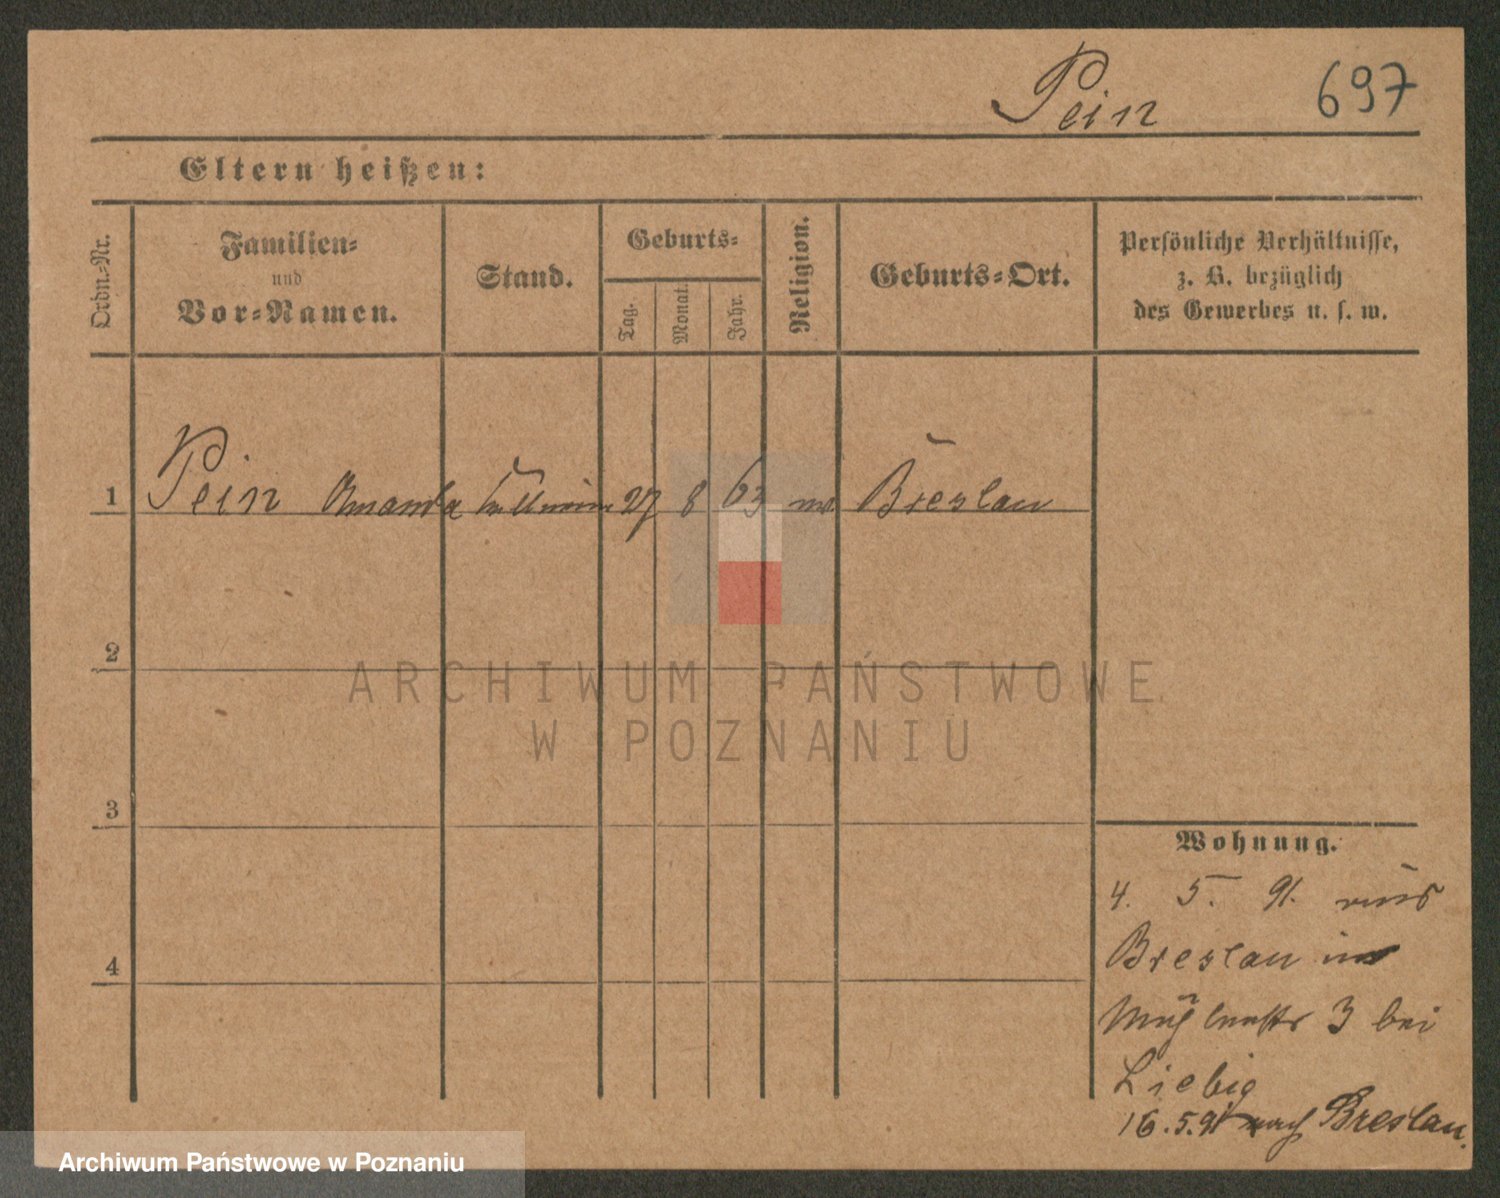 Pein 697
Eltern heißen:
Ordn.-Nr.
Familien-
und
Vor-Namen.
Stand.
Geburts-
Tag.
Monat.
Jahr.
Religion.
Geburts-Ort.
Persönliche Verhältnisse,
z. B. bezüglich
des Gewerbes u. s. w.
1 Pein Amanda 27 8 63 Breslau
2
ARCHIWUM PAŃSTWOWE
W POZNANIU
3
Wohnung.
4. 5. 91. aus
Breslau in
4
Mühlenstr 3 bei
Liebig
16.5.91 nach Breslau.
Archiwum Państwowe w Poznaniu